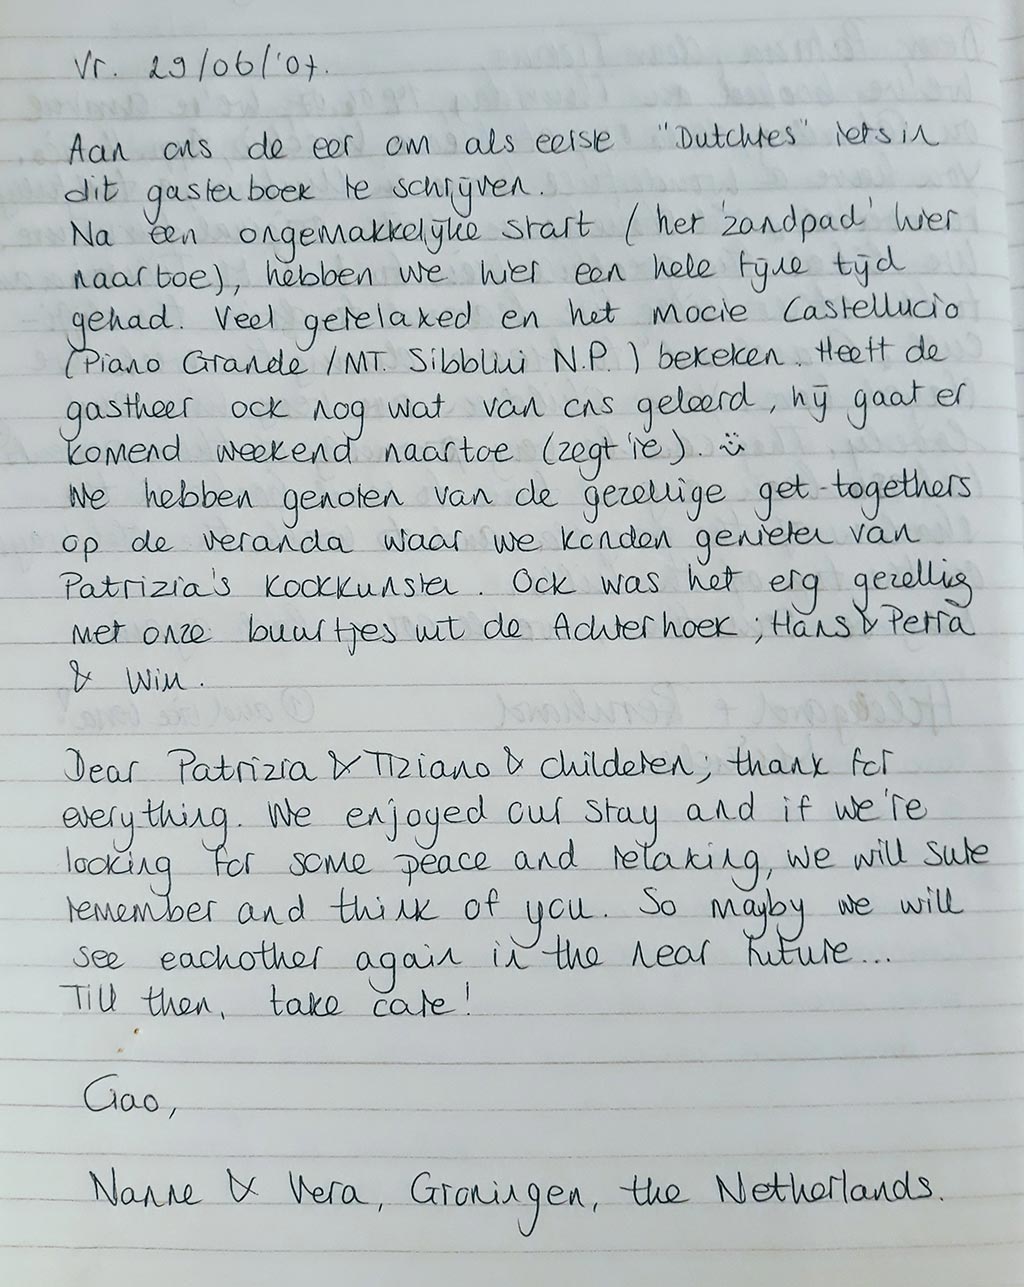 Vr. 29/06/'07.
Aan ons de eer om als eerste "Dutchies" iets in
dit gastenboek te schrijven.
Na een ongemakkelijke start (het 'zandpad' hier
naartoe), hebben we hier een hele fijne tijd
gehad. Veel gerelaxed en het mooie Castellucio
(Piano Grande / MT. Sibblini N.P.) bekeken. Heeft de
gastheer ook nog wat van ons geleerd, hij gaat er
komend weekend naartoe (zegt 'ie). ü
We hebben genoten van de gezellige get-togethers
op de veranda waar we konden genieten van
Patrizia's kookkunsten. Ook was het erg gezellig
met onze buurtjes uit de Achterhoek; Hans & Petra
& Wim.
Dear Patrizia & Tiziano & childeren; thank for
everything. We enjoyed our stay and if we're
looking for some peace and relaxing, we will sure
remember and think of you. So mayby we will
see eachother again in the near future...
Till then, take care!
Ciao,
Nanne & Vera, Groningen, the Netherlands.